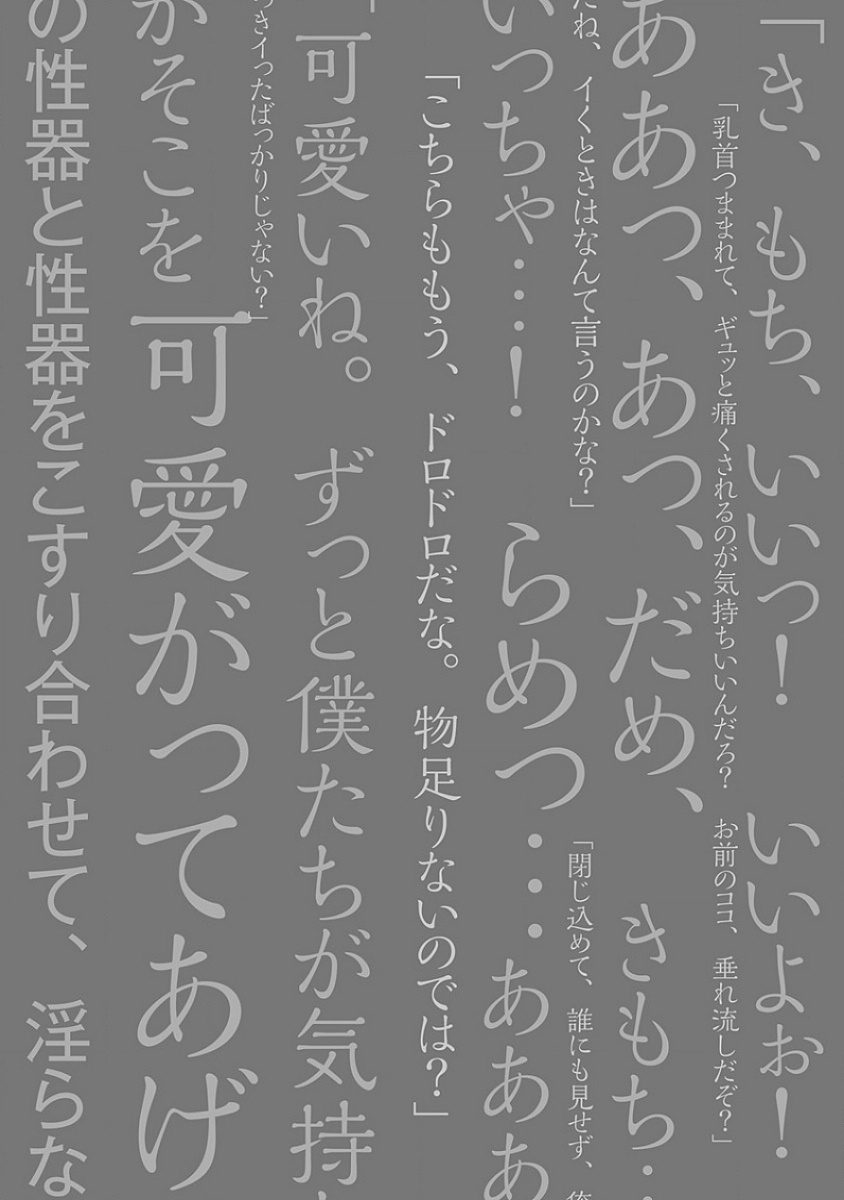 「き、もち、いいっ！　いいよぉ！
「乳首つままれて、ギュッと痛くされるのが気持ちいいんだろ？　お前のココ、垂れ流しだぞ？」
ああっ、あっ、だめ、きもち…
だね、イくときはなんて言うのかな？」
「閉じ込めて、誰にも見せず、俺
いっちゃ……！　らめっ……あああ
「こちらももう、ドロドロだな。物足りないのでは？」
「可愛いね。ずっと僕たちが気持
っきイったばっかりじゃない？」
がそこを可愛がってあげ
の性器と性器をこすり合わせて、淫らな